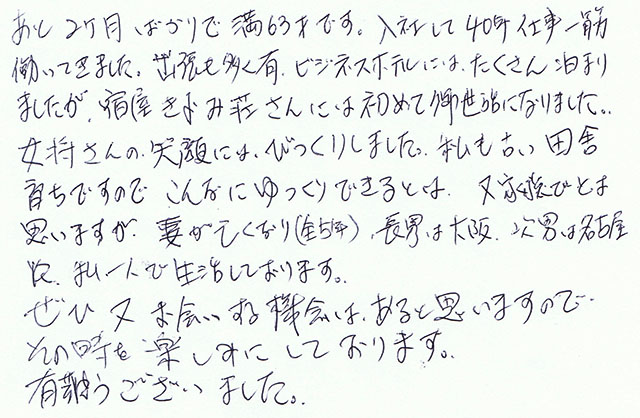 あと2ケ月ばかりで満63才です。入社して40年仕事一筋
働いてきました。出張も多く有、ビジネスホテルには、たくさん泊まり
ましたが、宿屋きよみ荘さんには初めて御世話になりました。
女将さんの、笑顔には、びっくりしました。私も古い田舎
育ちですのでこんなにゆっくりできるとは、又家族でとは
思いますが、妻が亡くなり、長男は大阪、次男は名古屋
に、私一人で生活しております。
ぜひ又お会いする機会は、あると思いますので
その時を楽しみにしております。
有難うございました。